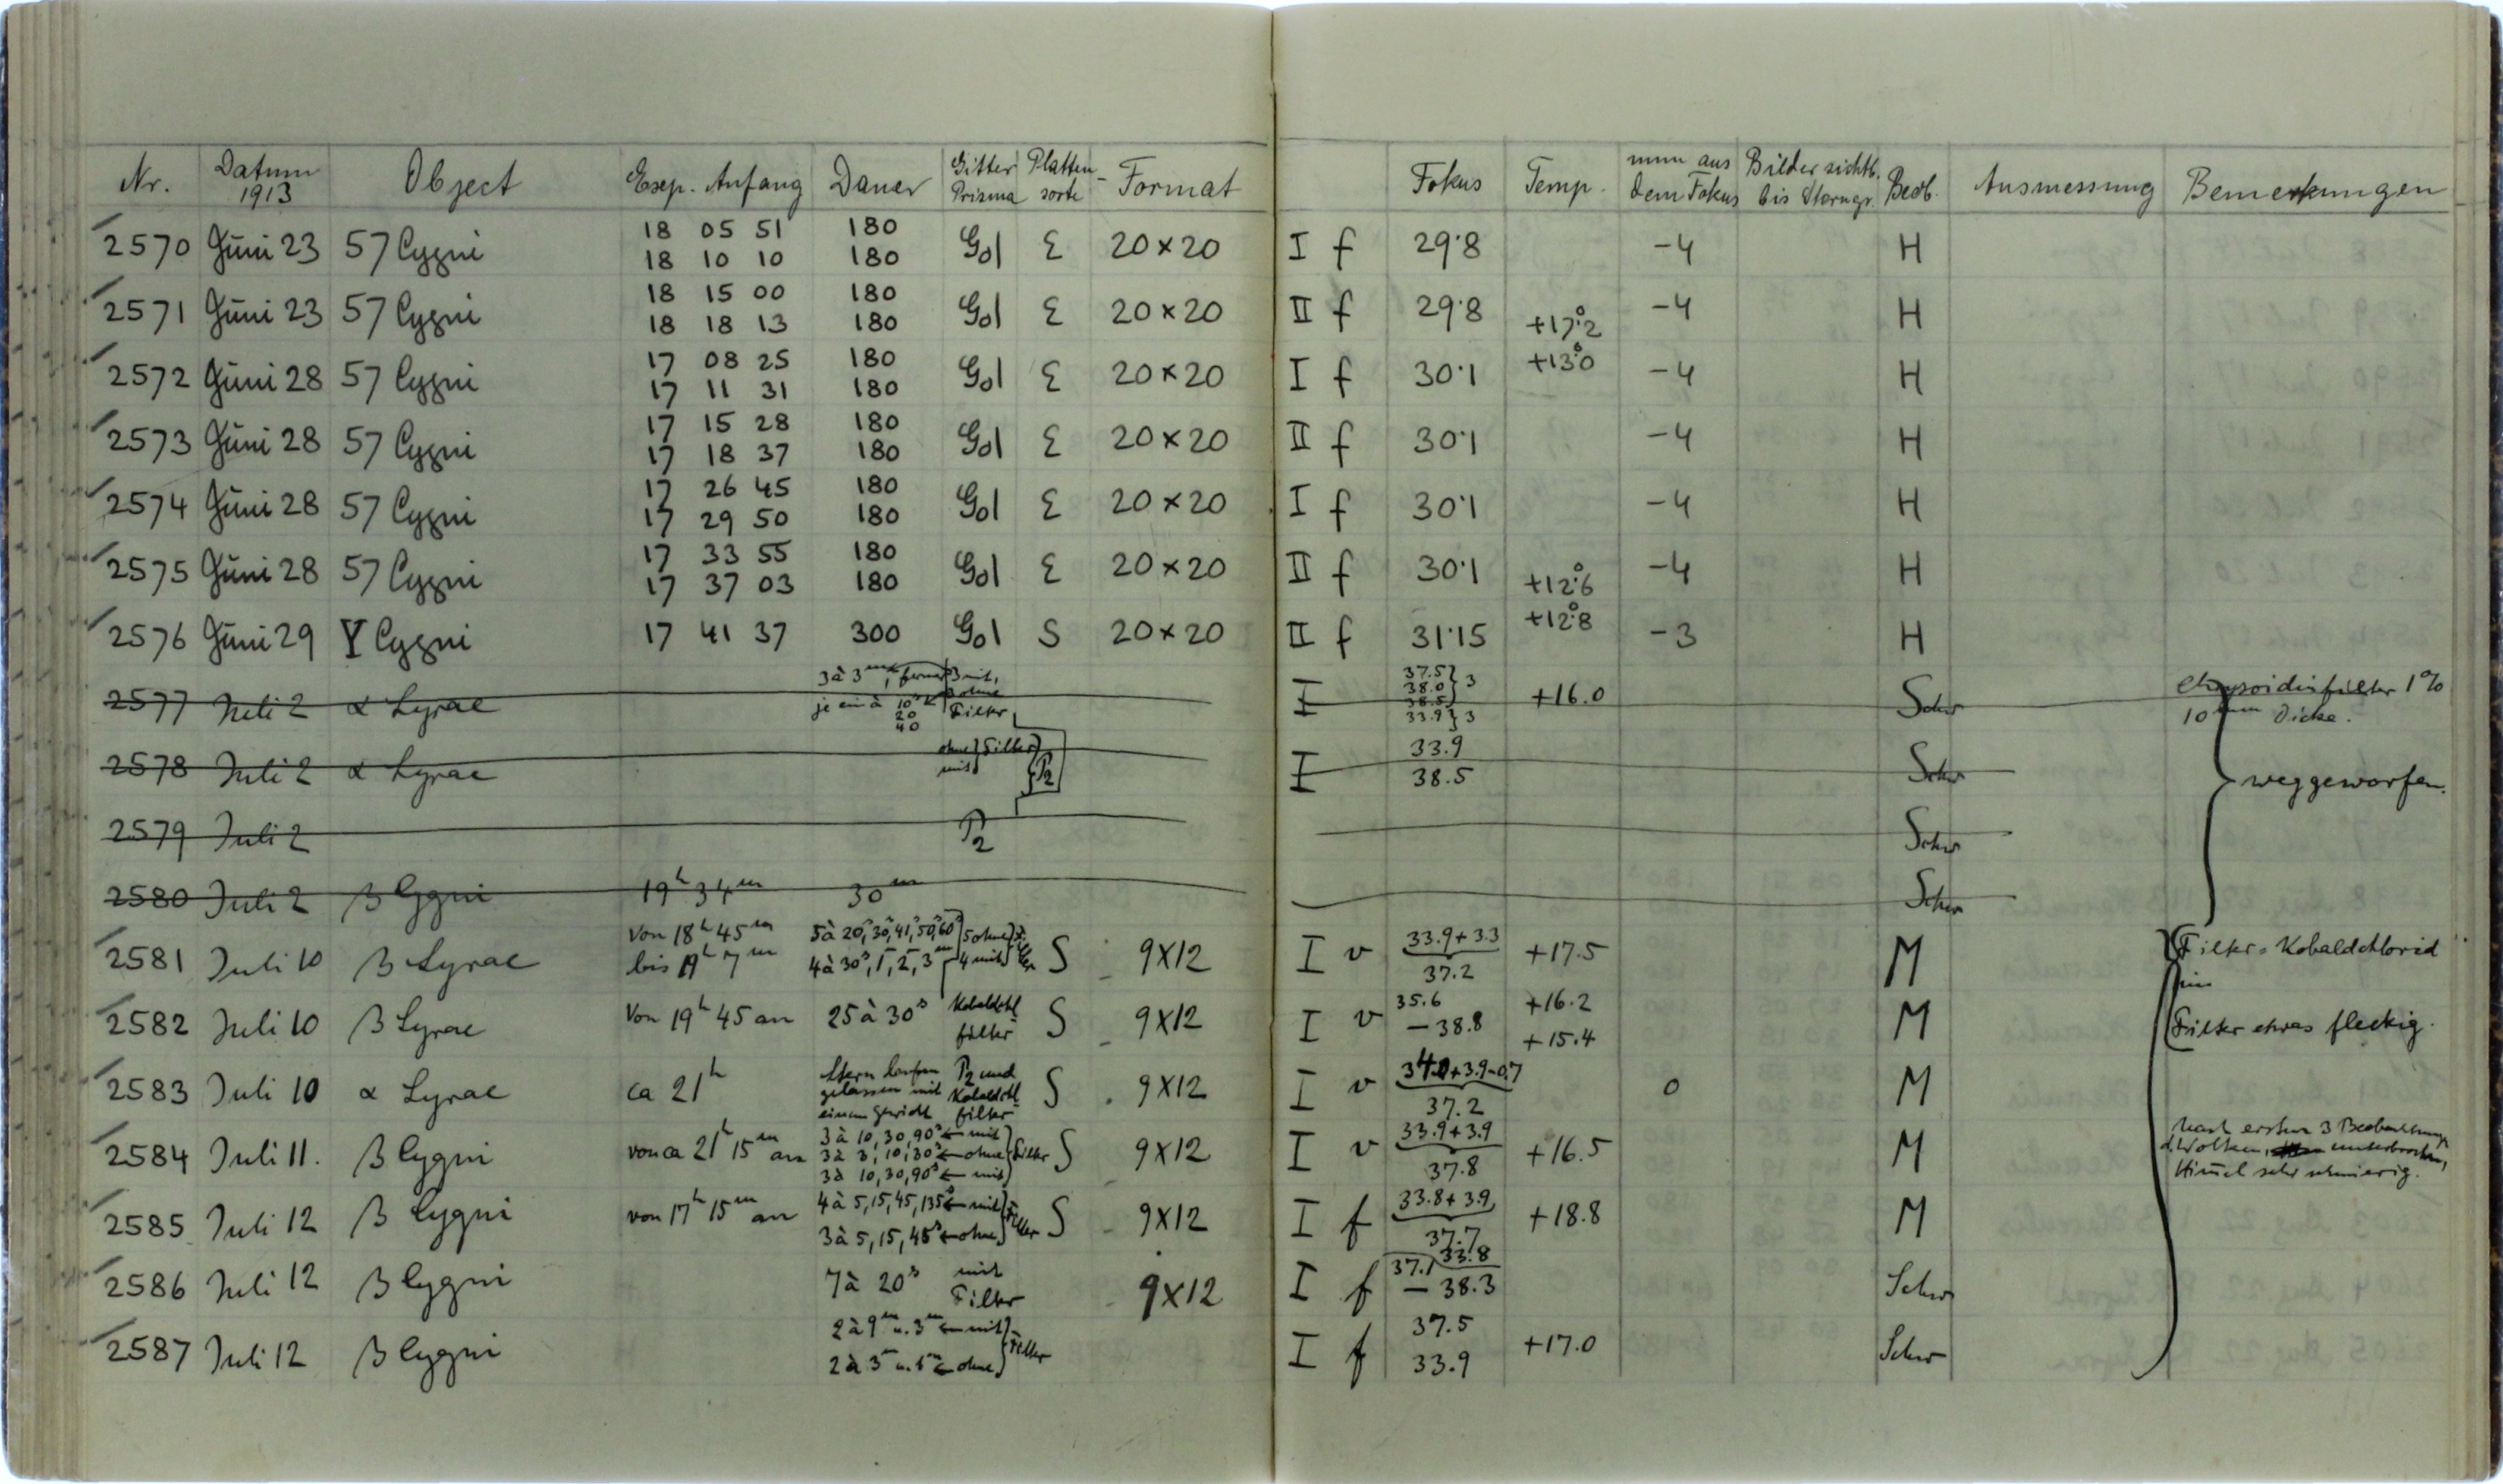 Nr. Datum 1913 Object Exp. Anfang Dauer Gitter Prisma Platten-sorte Format Fokus Temp. mm aus dem Fokus Bilder sichtb. bis Sterngr. Beob. Ausmessung Bemerkungen
2570 Juni 23 57 Cygni 18 05 51 180 Gol Σ 20×20 I f 29.8 -4 H
18 10 10 180
2571 Juni 23 57 Cygni 18 15 00 180 Gol Σ 20×20 II f 29.8 +17°.2 -4 H
18 18 13 180
2572 Juni 28 57 Cygni 17 08 25 180 Gol Σ 20×20 I f 30.1 +13°.0 -4 H
17 11 31 180
2573 Juni 28 57 Cygni 17 15 28 180 Gol Σ 20×20 II f 30.1 -4 H
17 18 37 180
2574 Juni 28 57 Cygni 17 26 45 180 Gol Σ 20×20 I f 30.1 -4 H
17 29 50 180
2575 Juni 28 57 Cygni 17 33 55 180 Gol Σ 20×20 II f 30.1 +12°.6 -4 H
17 37 03 180
2576 Juni 29 Y Cygni 17 41 37 300 Gol S 20×20 II f 31.15 +12°.8 -3 H
2577 Juli 2 α Lyrae 3 à 3m, ferner je ein à 10s 20 40 3 mit, 3 ohne Filter I 37.5 38.0 38.5 } 3 33.9 } 3 +16.0 Schw Chrysoidinfilter 1%
10mm Dicke.
2578 Juli 2 α Lyrae ohne mit } Filter } P2 I 33.9 38.5 Schw weggeworfen.
2579 Juli 2 P2 Schw
2580 Juli 2 β Cygni 19h 34m 30m Schw
2581 Juli 10 β Lyrae Von 18h 45m bis 19h 7m 5 à 20s, 30s, 41s, 50s, 60s 5 ohne 4 à 30s, 1, 2, 3m 4 mit Filter S 9×12 I v 33.9+3.3 37.2 +17.5 M Filter = Kobaldchlorid
2582 Juli 10 β Lyrae Von 19h 45 an 25 à 30s Kobaldchl filter S 9×12 I v 35.6 – 38.8 +16.2 +15.4 M Filter etwas fleckig.
2583 Juli 10 α Lyrae ca 21h Stern laufen gelassen mit einem Gewicht P2 und Kobaldchl filter S 9×12 I v 34.0+3.9-0.7 37.2 0 M
2584 Juli 11. β Cygni von ca 21h 15m an 3 à 10, 30, 90s ← mit 3 à 3, 10, 30s ← ohne 3 à 10, 30, 90s ← mit } Filter S 9×12 I v 33.9+3.9 37.8 +16.5 M Nach ersten 3 Beobachtungen
d. Wolken, unterbrochen,
Himmel sehr schmierig.
2585 Juli 12 β Cygni von 17h 15m an 4 à 5, 15, 45, 135s ← mit 3 à 5, 15, 45s ← ohne } Filter S 9×12 I f 33.8+3.9 37.7 +18.8 M
2586 Juli 12 β Cygni 7 à 20s mit Filter 9×12 I f 33.8 37.1 – 38.3 Schw
2587 Juli 12 β Cygni 2 à 9m u. 3m ← mit 2 à 3m u. 1m ← ohne } Filter I f 37.5 33.9 +17.0 Schw